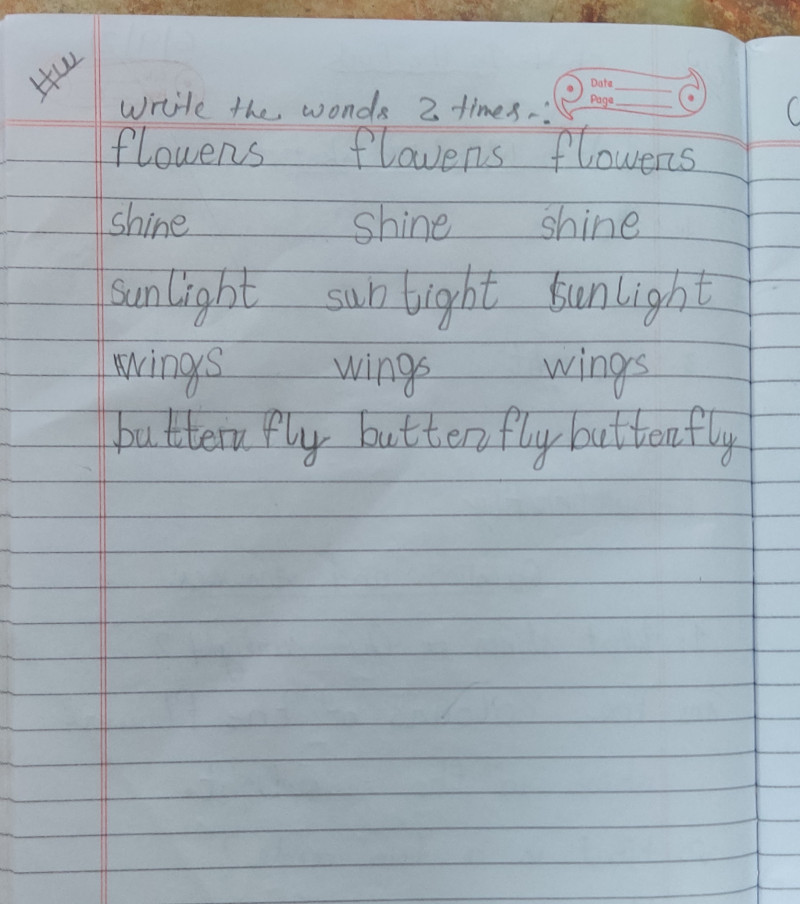 HW
Write the words 2 times -:
Date
Page
flowers flowers flowers
shine shine shine
sunlight sun light sunlight
wings wings wings
butter fly butter fly butterfly